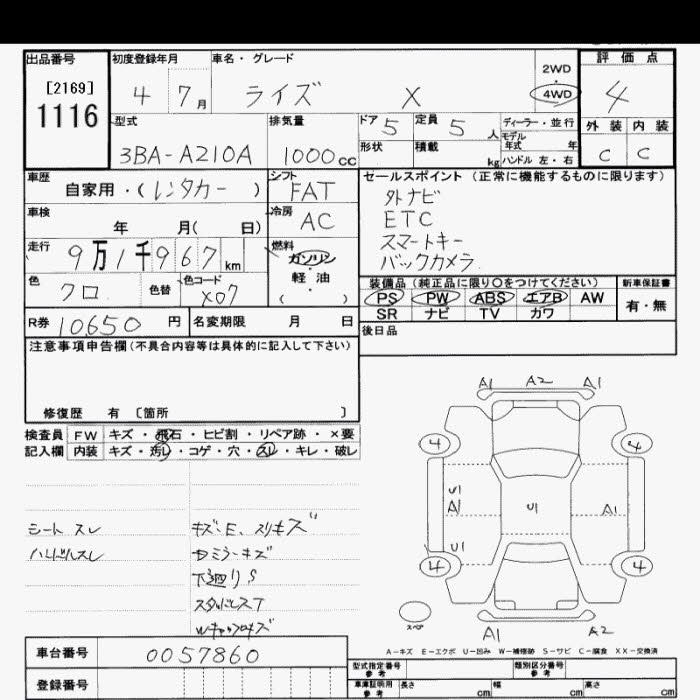 出品番号 初度登録年月 車名・グレード 評価点
[2169]
1116
4 7月 ライズ X
2WD
4WD
4
型式 排気量 ドア 5 定員 5 人 ディーラー・並行
モデル年式 年
外装 内装
3BA-A210A 1000cc 形状 積載 kg ハンドル 左・右
C C
車歴 自家用・(レンタカー) シフト FAT
セールスポイント (正常に機能するものに限ります)
外ナビ
ETC
スマートキー
バックカメラ
車検 年 月( 日) 冷房 AC
走行 9万1千967km 燃料 ガソリン・軽油
( )
色 クロ 色替 色コード X07
装備品 (純正品に限り○をつけてください) 新車保証書
PS PW ABS エアB AW
SR ナビ TV カワ
有・無
R券 10650円 名変期限 月 日
後日品
注意事項申告欄(不具合内容等は具体的に記入して下さい)
修復歴 有 〔箇所 〕
検査員記入欄
FW キズ・飛石・ヒビ割・リペア跡・×要
内装 キズ・汚レ・コゲ・穴・スレ・キレ・破レ
シート スレ
ハンドルスレ
キズ・E、スリキズ
ドアミラーキズ
下廻りS
スタッドレスT
A1 A2 A1
4 4
U1
A1 U1 A1
U1
4 4
スペア
A1 A2
A-キズ E-エクボ U-凹み W-補修跡 S-サビ C-腐食 XX-交換済
車台番号 0057860
登録番号
型式指定番号 参考 類別区分番号 参考
車庫証明用 参考 長さ cm 幅 cm 高さ cm